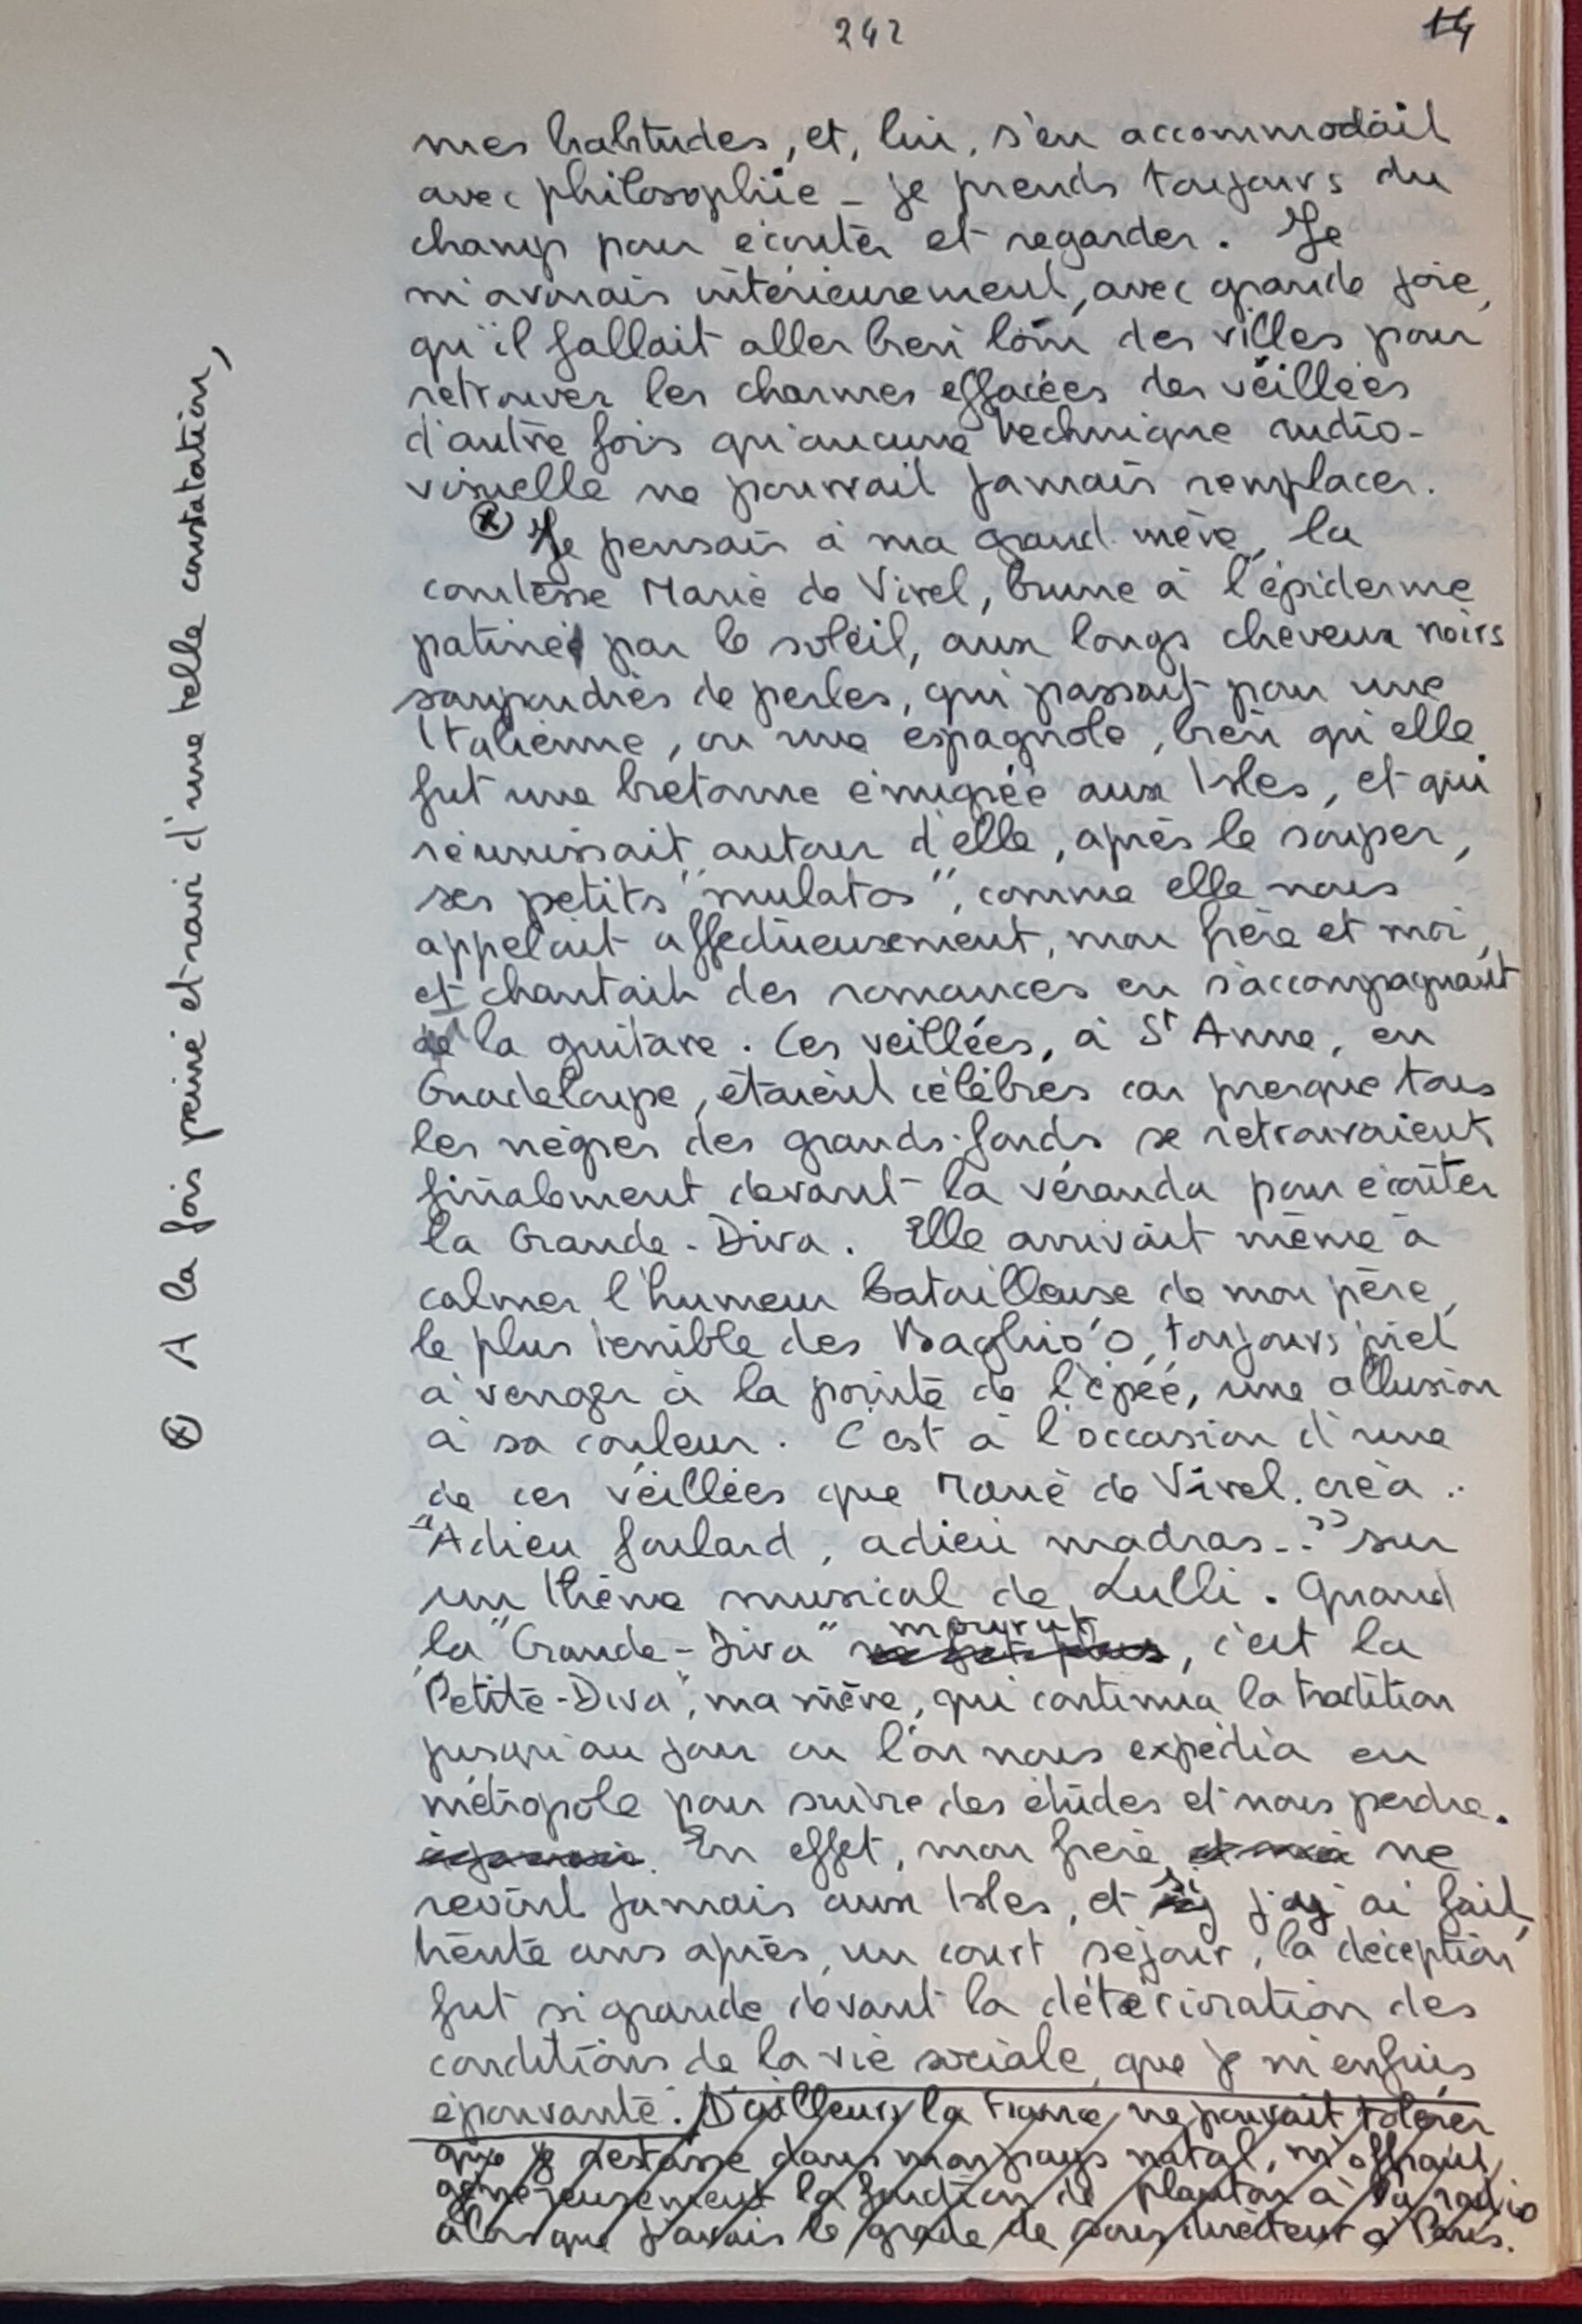 242
14
mes habitudes, et, lui, s'en accommodait
avec philosophie _ je prends toujours du
champ pour écouter et regarder. Je
m'avouais intérieurement, avec grande joie,
qu'il fallait aller bien loin des villes pour
retrouver les charmes effacées des veillées
d'autre fois qu'aucune technique audio-
visuelle ne pourrait jamais remplacer.
⊗ Je pensais à ma grand mère, la
comtesse Marie de Vivel, brune à l'épiderme
patiné par le soleil, aux longs cheveux noirs
saupoudrés de perles, qui passait pour une
Italienne, ou une espagnole, bien qu'elle
fut une bretonne émigrée aux Isles, et qui
réunissait autour d'elle, après le souper,
ses petits "mulatos", comme elle nous
appelait affectueusement, mon frère et moi,
et chantait des romances en s'accompagnant
de la guitare. Ces veillées, à St Anne, en
Guadeloupe, étaient célèbres car presque tous
les nègres des grands-fonds se retrouvaient
finalement devant la véranda pour écouter
la Grande-Diva. Elle arrivait même à
calmer l'humeur batailleuse de mon père,
le plus terrible des Baghio'o, toujours prêt
à venger à la pointe de l'épée, une allusion
à sa couleur. C'est à l'occasion d'une
de ces veillées que Marie de Vivel créa ..
"Adieu foulard, adieu madras..." sur
un thème musical de Lulli. Quand
la "Grande-Diva" ne fut plus mourut, c'est la
"Petite-Diva", ma mère, qui continua la tradition
jusqu'au jour ou l'on nous expédia en
métropole pour suivre des études et nous perdre.
à jamais. En effet, mon frère et moi ne
revint jamais aux Isles, et si j'y ai fait,
trente ans après, un court séjour, la déception
fut si grande devant la détérioration des
conditions de la vie sociale, que je m'enfuis
épouvanté. D'ailleurs la France ne pouvait tolérer
que je restasse dans mon pays natal, m'offrant
généreusement la fonction de planton à la radio
alors que j'avais le grade de sous directeur à Paris.
⊗ A la fois peiné et ravi d'une telle constatation,